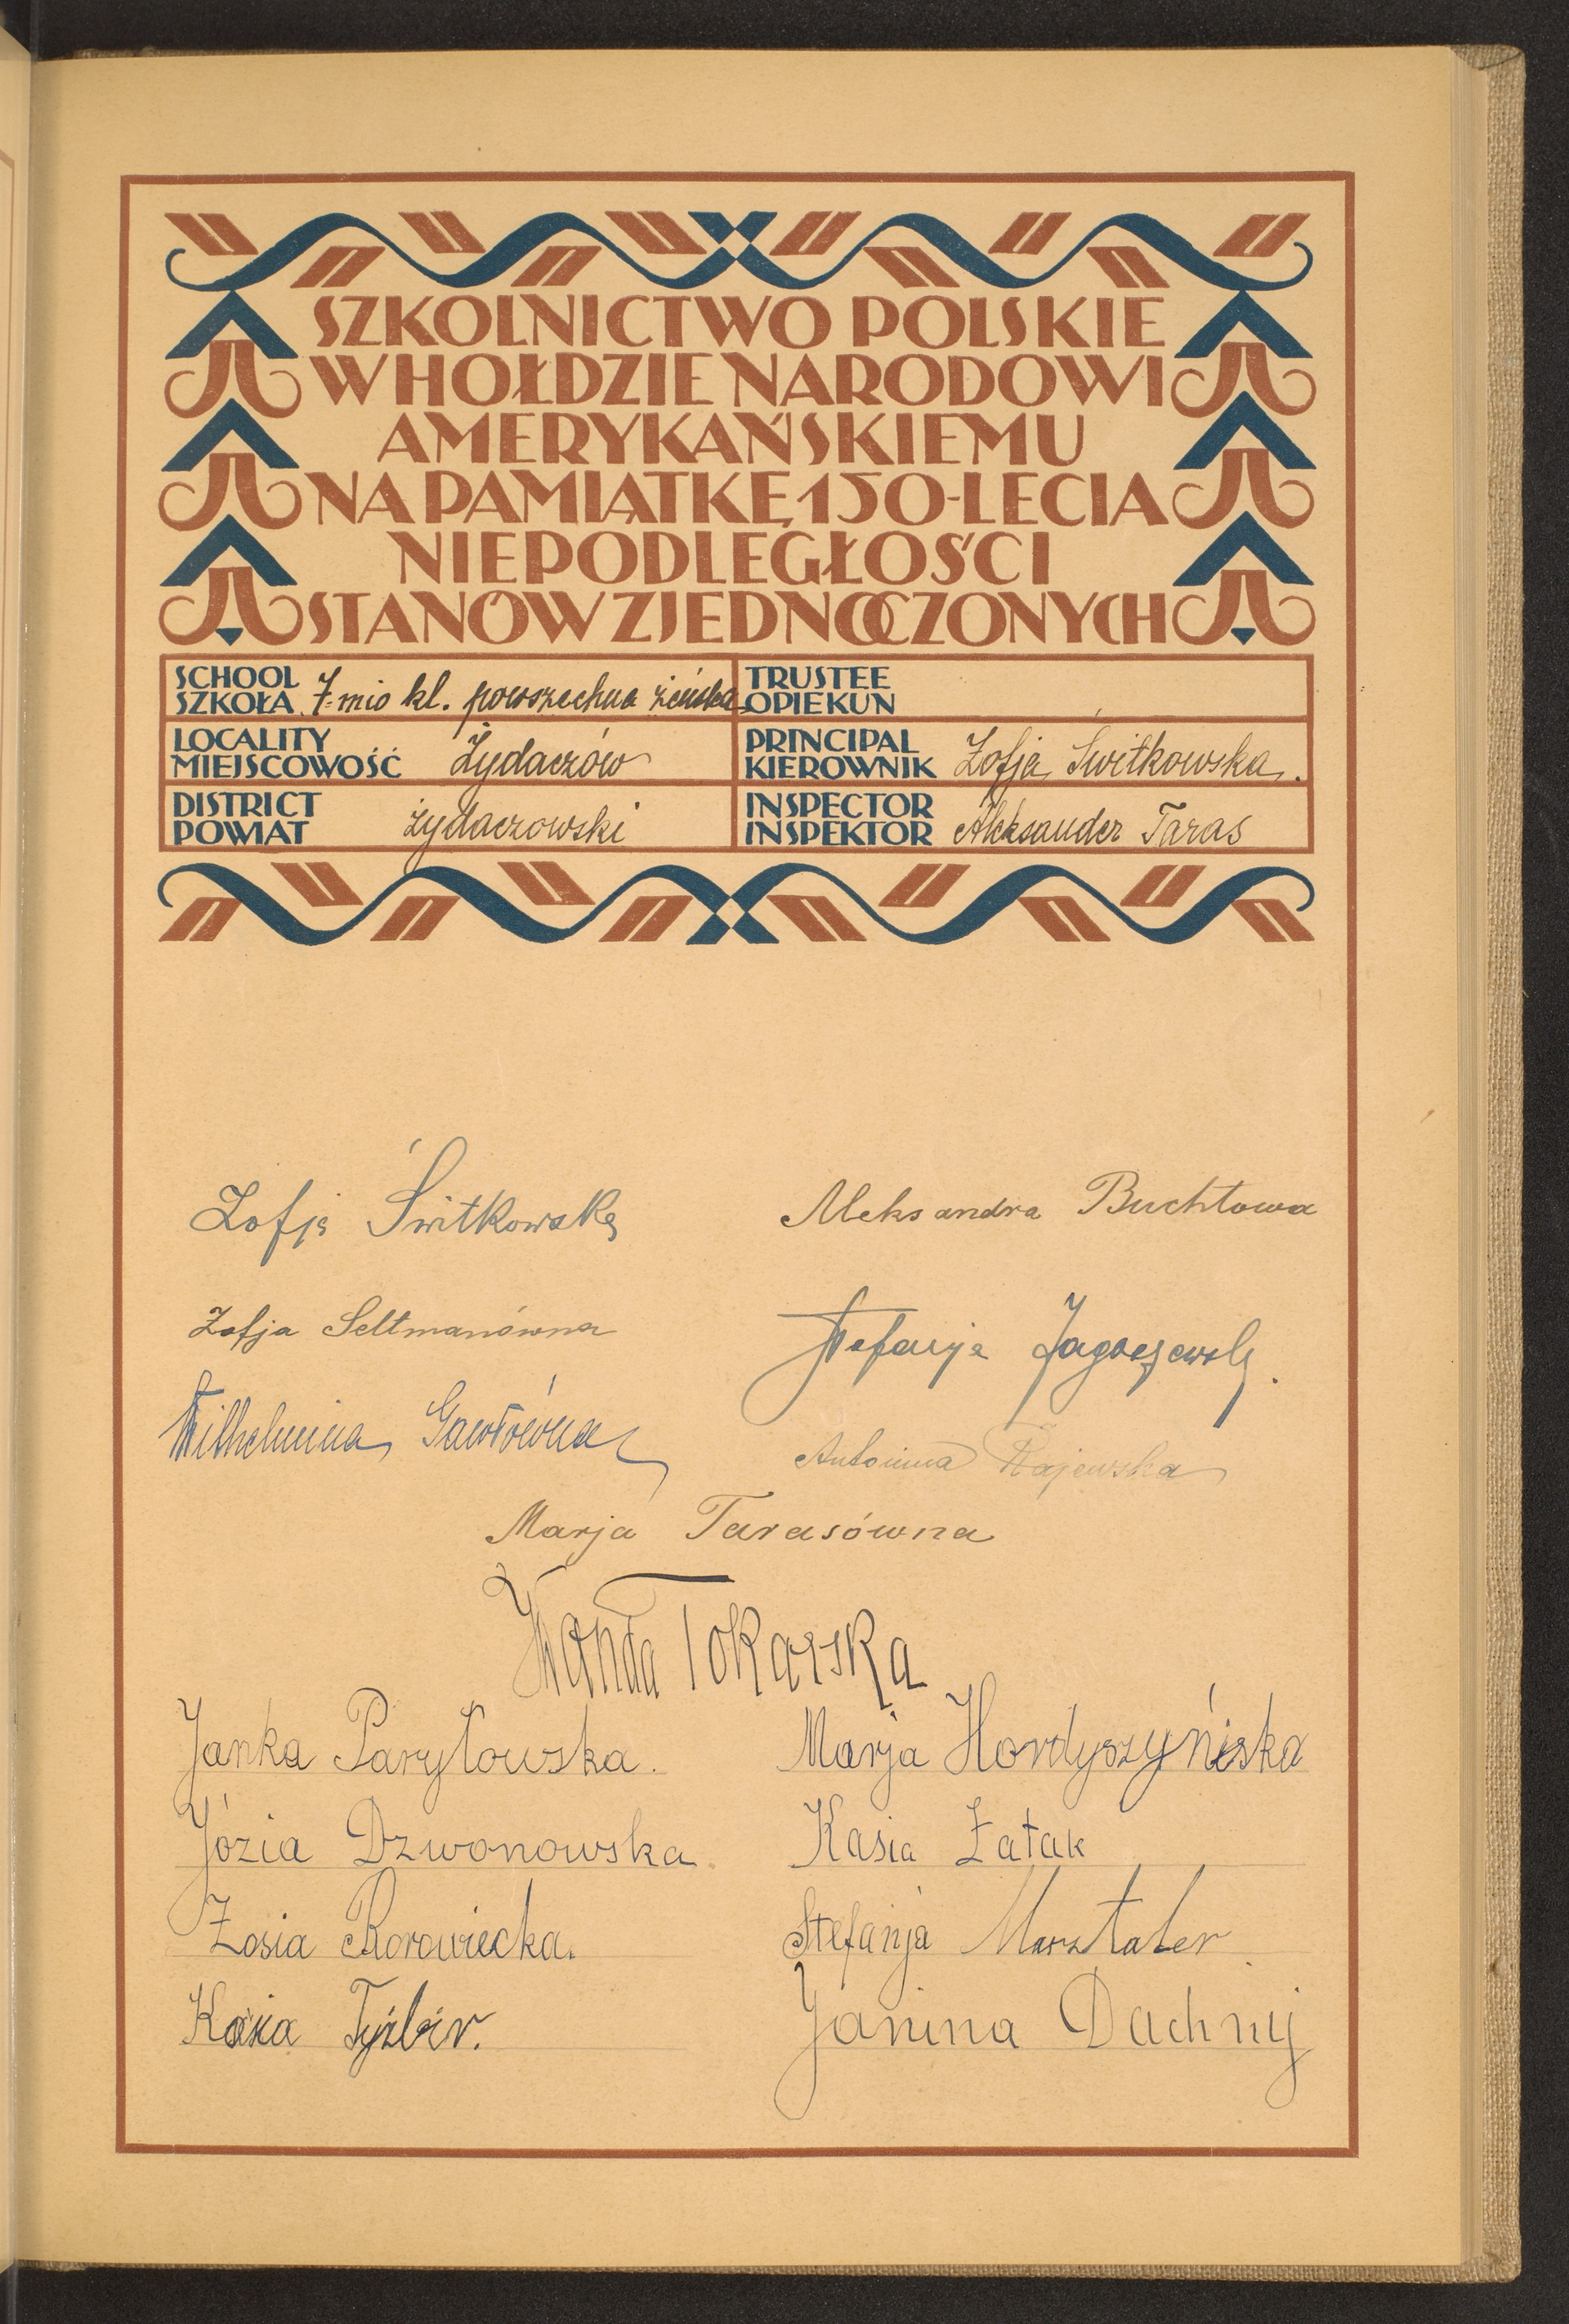 SZKOLNICTWO POLSKIE
W HOŁDZIE NARODOWI
AMERYKAŃSKIEMU
NA PAMIĄTKĘ 150-LECIA
NIEPODLEGŁOŚCI
STANÓW ZJEDNOCZONYCH
SCHOOL
SZKOŁA 7-mio kl. powszechna żeńska
TRUSTEE
OPIEKUN
LOCALITY
MIEJSCOWOŚĆ Żydaczów
PRINCIPAL
KIEROWNIK Zofja Świtkowska.
DISTRICT
POWIAT żydaczowski
INSPECTOR
INSPEKTOR Aleksander Taras
Zofja Świtkowska
Aleksandra Buchtowa
Zofja Seltmanówna
Stefanja
Wilhelmina Gawłówna
Antonina Rajewska
Marja Tarasówna
Wanda Tokarska
Janka Paryłowska.
Marja Hordyszyńska
Józia Dzwonowska
Kasia Łatak
Zosia Borowiecka.
Stefanja Marsztaler
Kasia
Janina Dachnij